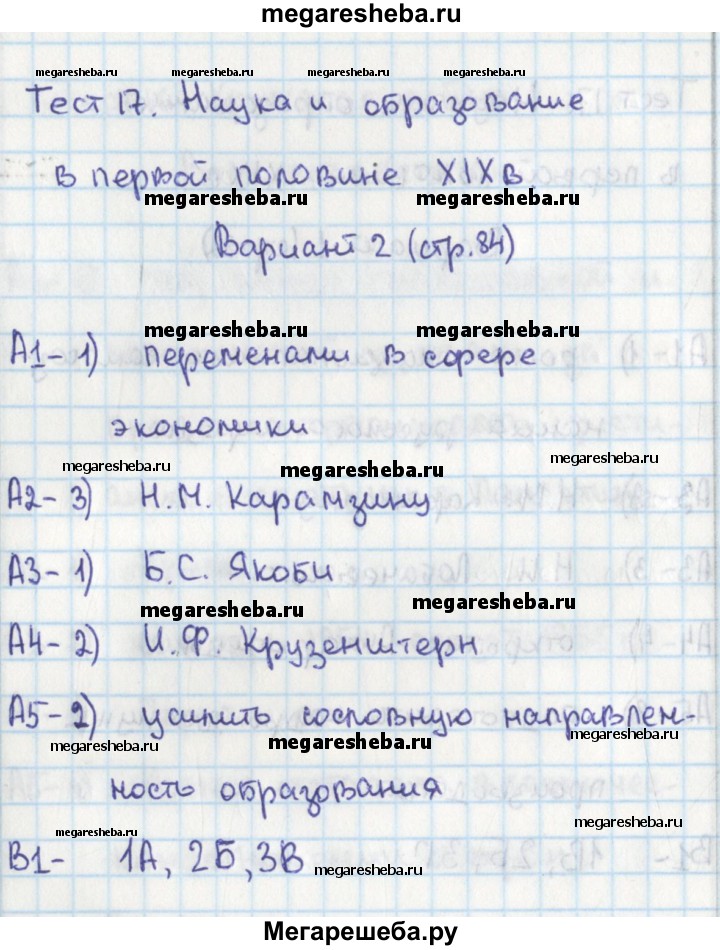 megaresheba.ru
megaresheba.ru megaresheba.ru megaresheba.ru megaresheba.ru
Тест 17. Наука и образование
в первой половине XIXв.
megaresheba.ru megaresheba.ru
Вариант 2 (стр.84)
megaresheba.ru megaresheba.ru
А1- 1) переменами в сфере
экономики
megaresheba.ru megaresheba.ru megaresheba.ru
А2- 3) Н.М. Карамзину
А3- 1) Б.С. Якоби
megaresheba.ru megaresheba.ru
А4- 2) И.Ф. Крузенштерн
А5- 2) усилить сословную направлен-
megaresheba.ru megaresheba.ru megaresheba.ru
ность образования
megaresheba.ru megaresheba.ru
В1- 1А, 2Б, 3В
megaresheba.ru
Мегарешеба.ру